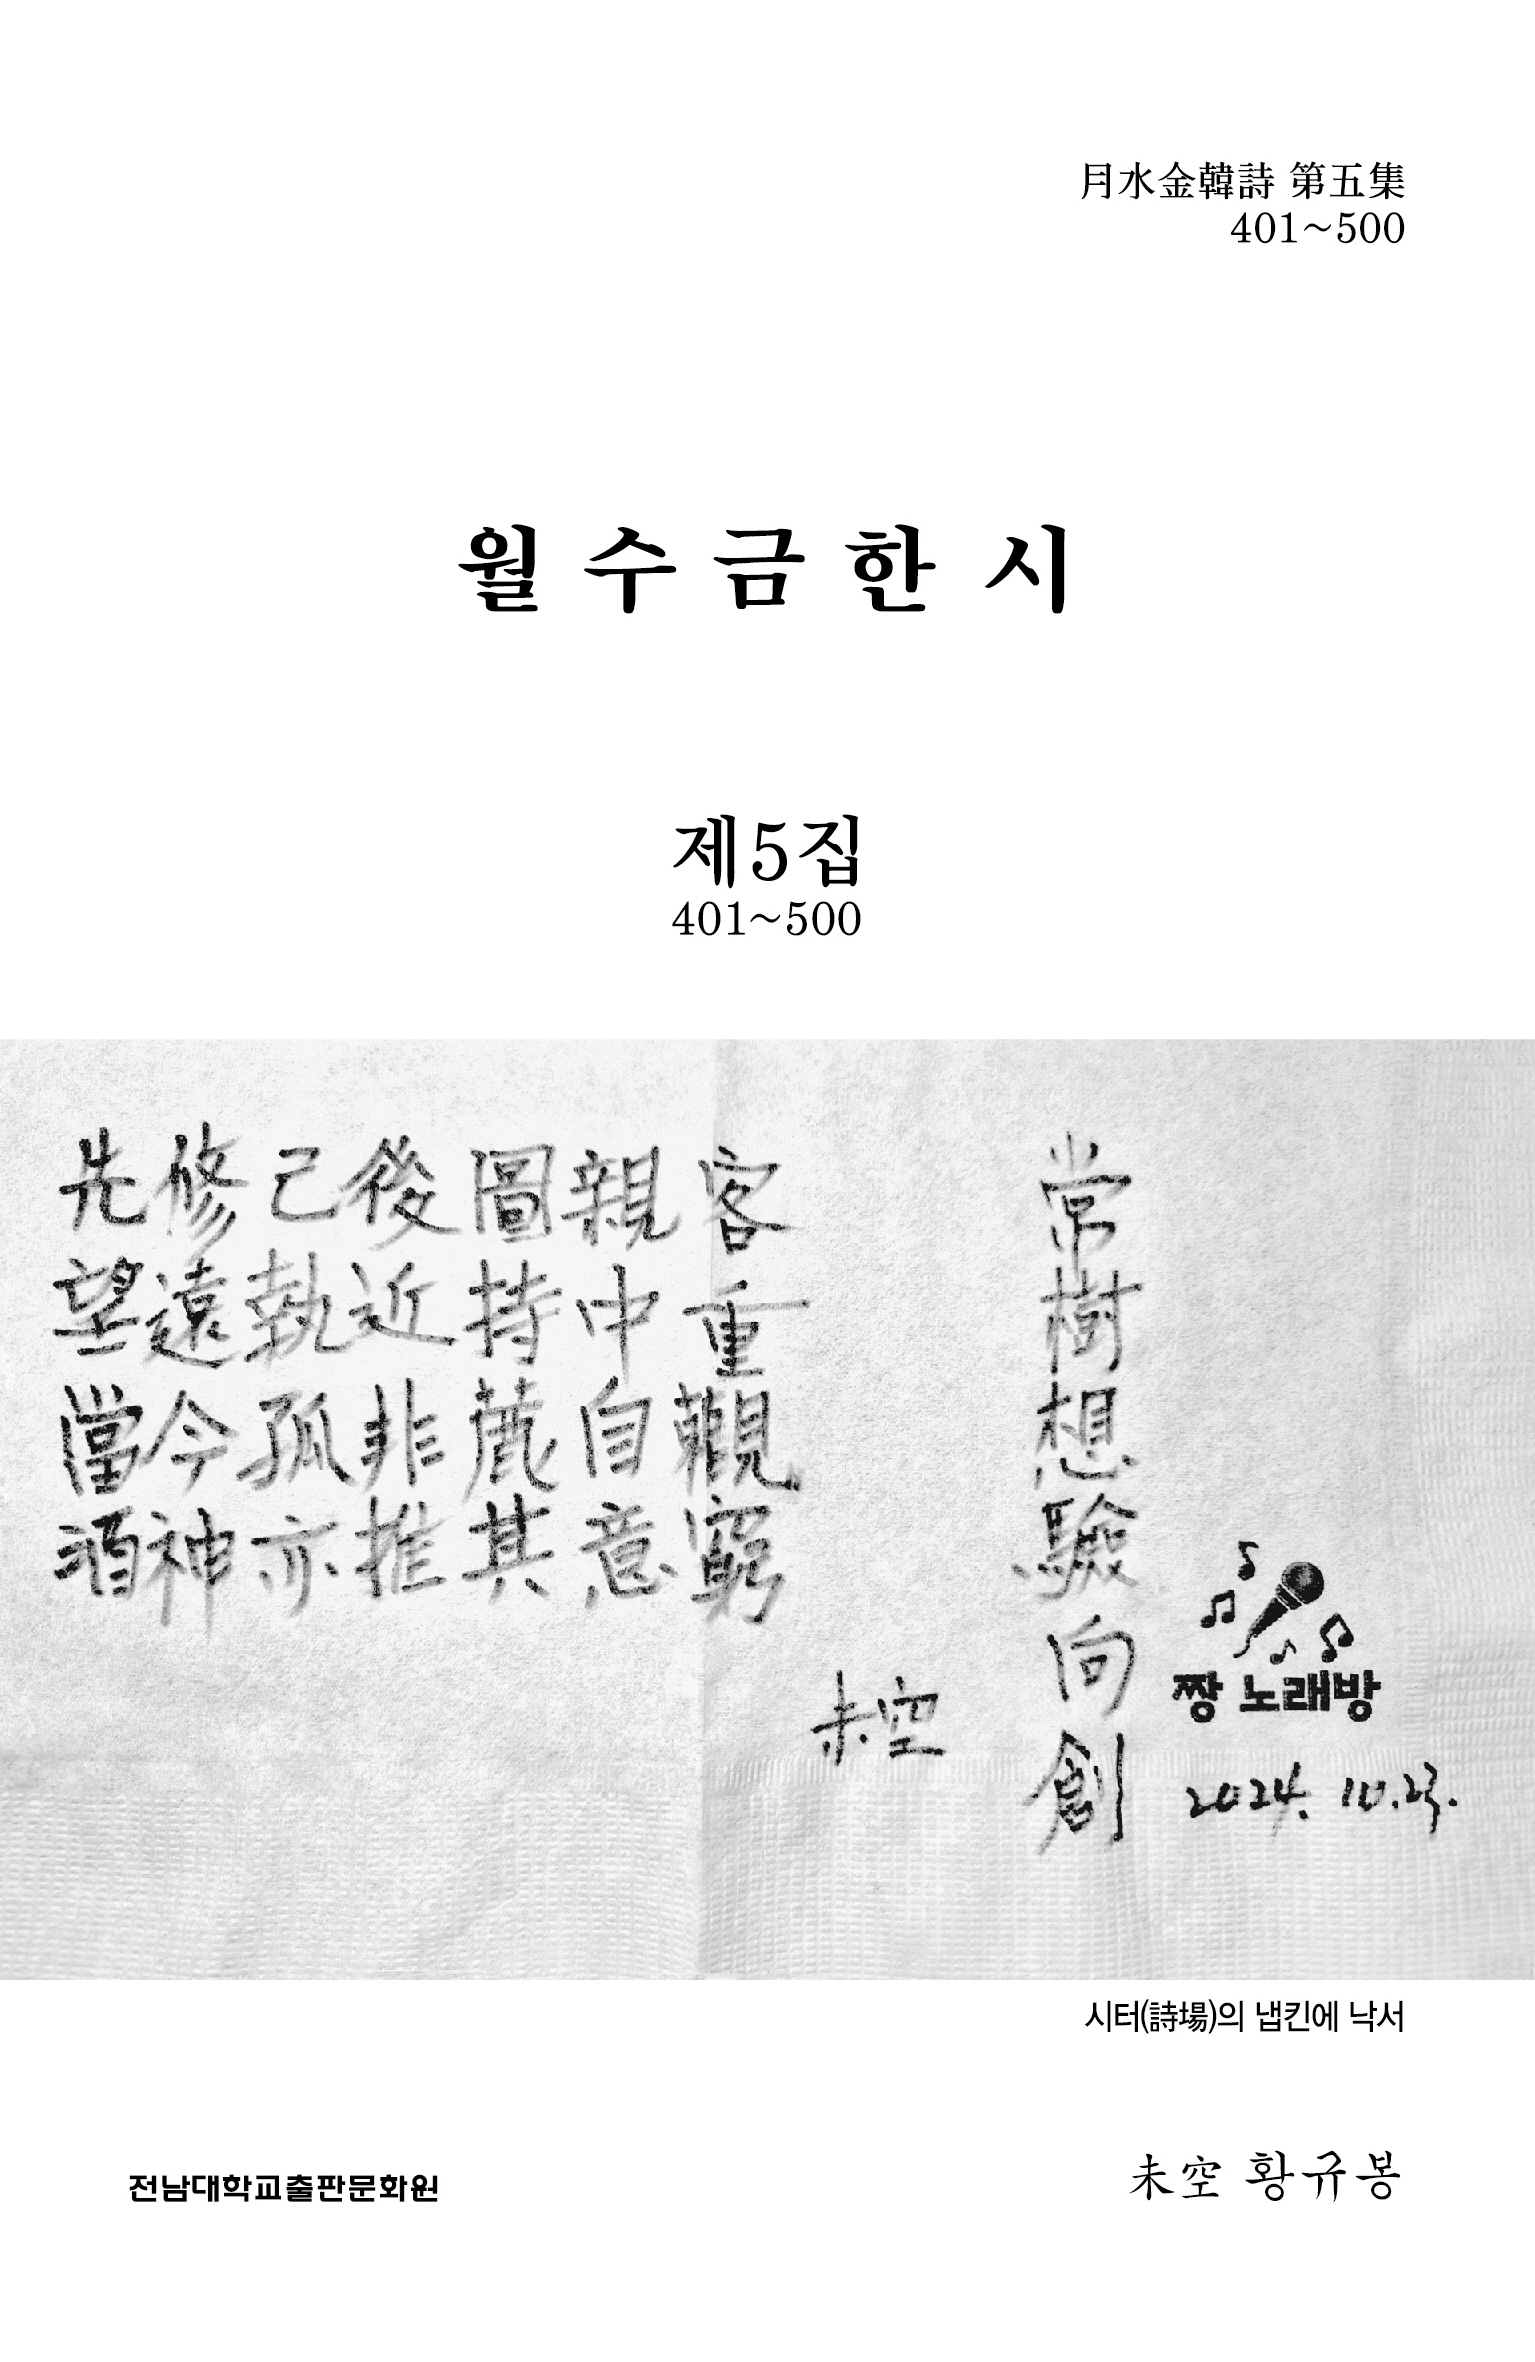 月水金韓詩 第五集
401~500
월수금한시
제5집
401~500
先修己後圖親客
望遠執近持中重
當今孤非麓自觀
酒神亦推其意窮
未空
常樹想驗向創
짱 노래방
2024. 10.23.
시터(詩場)의 냅킨에 낙서
전남대학교출판문화원
未空 황규봉